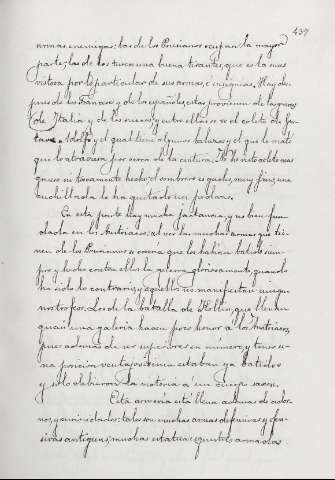 437
armas enemigas: las de los Prusianos ocupan la mayor
parte; las de los turcos una buena tirantes, que es la mas
vistosa por lo particular de sus armas, é insignias. Hay des
pues de los Franceses y de los españoles; estas provienen de las guerras
de Italia y de los suecos; y entre ellas se ve el coleto de Gus
tavo Adolfo y el qual tiene algunos balazos; y el que le mató
que le atraviesa por cerca de la cintura; No he visto coleto mas
grueso ni toscamente hecho; el sombrero es gacho, muy fino, una
cuchillada le ha quitado un pedazo.
En esta parte hay mucha jactancia, y no bien fun
dada en los Austriacos; al ver las muchas armas que tie
nen de los Prusianos se creería que los habían batido siem
pre y hecho contra ellos la guerra gloriosamente, quando
ha sido lo contrario, y aquellos no manifiestan ningun
nos trofeos. Los de la batalla de Kollin, que llenan
quasi una galería hacen poco honor a los Austriacos,
pues ademas de ser superiores en número, y tener u
na posición ventajosisima estaban ya batidos
y solo debieron la victoria a un cuerpo saxon.
Esta armería está llena ademas de ador
nos, y curiosidades: tales son muchas armas defensivas y ofen
sivas antiguas; muchas estatuas equestres armadas